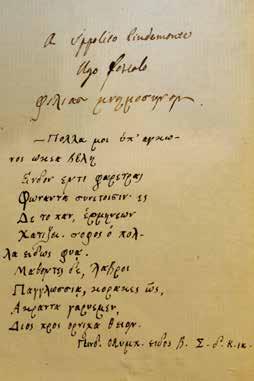 A Ippolito Pindemonte
Ugo Foscolo
φιλιας μνημοσυνον.
— Πολλα μοι υπ' αγκω-
νος ωκεα βελη
Ενδον εντι φαρετρας
Φωναντα συνετοισιν· ες
Δε το παν, ερμηνεων
Χατιζει. σοφος ο πολ-
λα ειδως φυα.
Μαθοντες δε, λαβροι
Παγγλωσσια, κορακες ως,
Ακραντα γαρυεμεν,
Διος προς ορνιχα θειον.
Πινδ. Ολυμπ. ειδος β. Σ.